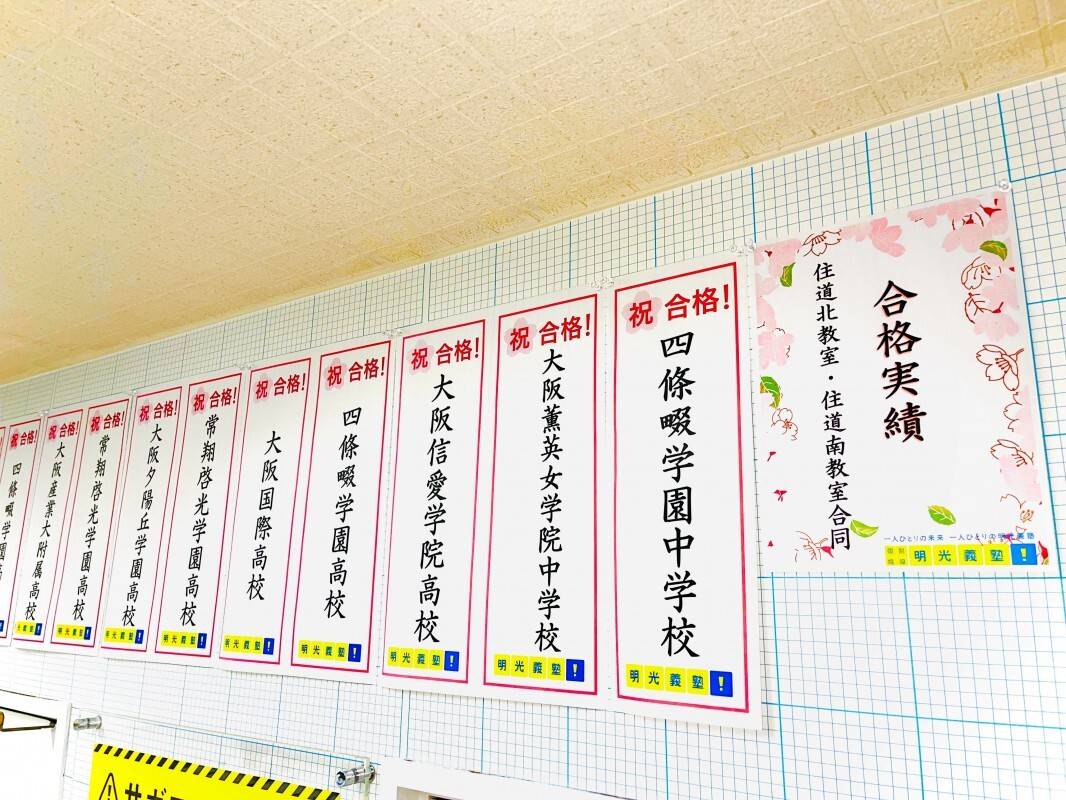 合格実績
住道北教室・住道南教室合同
一人ひとりの未来 一人ひとりの明光義塾
個別指導
明光義塾!
祝 合格!
四條畷学園中学校
明光義塾!
祝 合格!
大阪薫英女学院中学校
明光義塾!
祝 合格!
大阪信愛学院高校
明光義塾!
祝 合格!
四條畷学園高校
明光義塾!
祝 合格!
大阪国際高校
明光義塾!
祝 合格!
常翔啓光学園高校
明光義塾!
祝 合格!
大阪夕陽丘学園高校
明光義塾!
祝 合格!
常翔啓光学園高校
明光義塾!
祝 合格!
大阪産業大附属高校
明光義塾!
祝 合格!
四條畷学園高